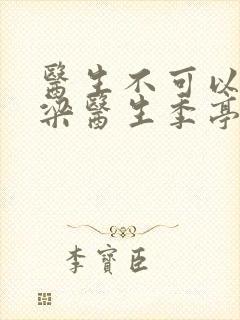 醫生不可以
梁醫生季亭
李寶臣